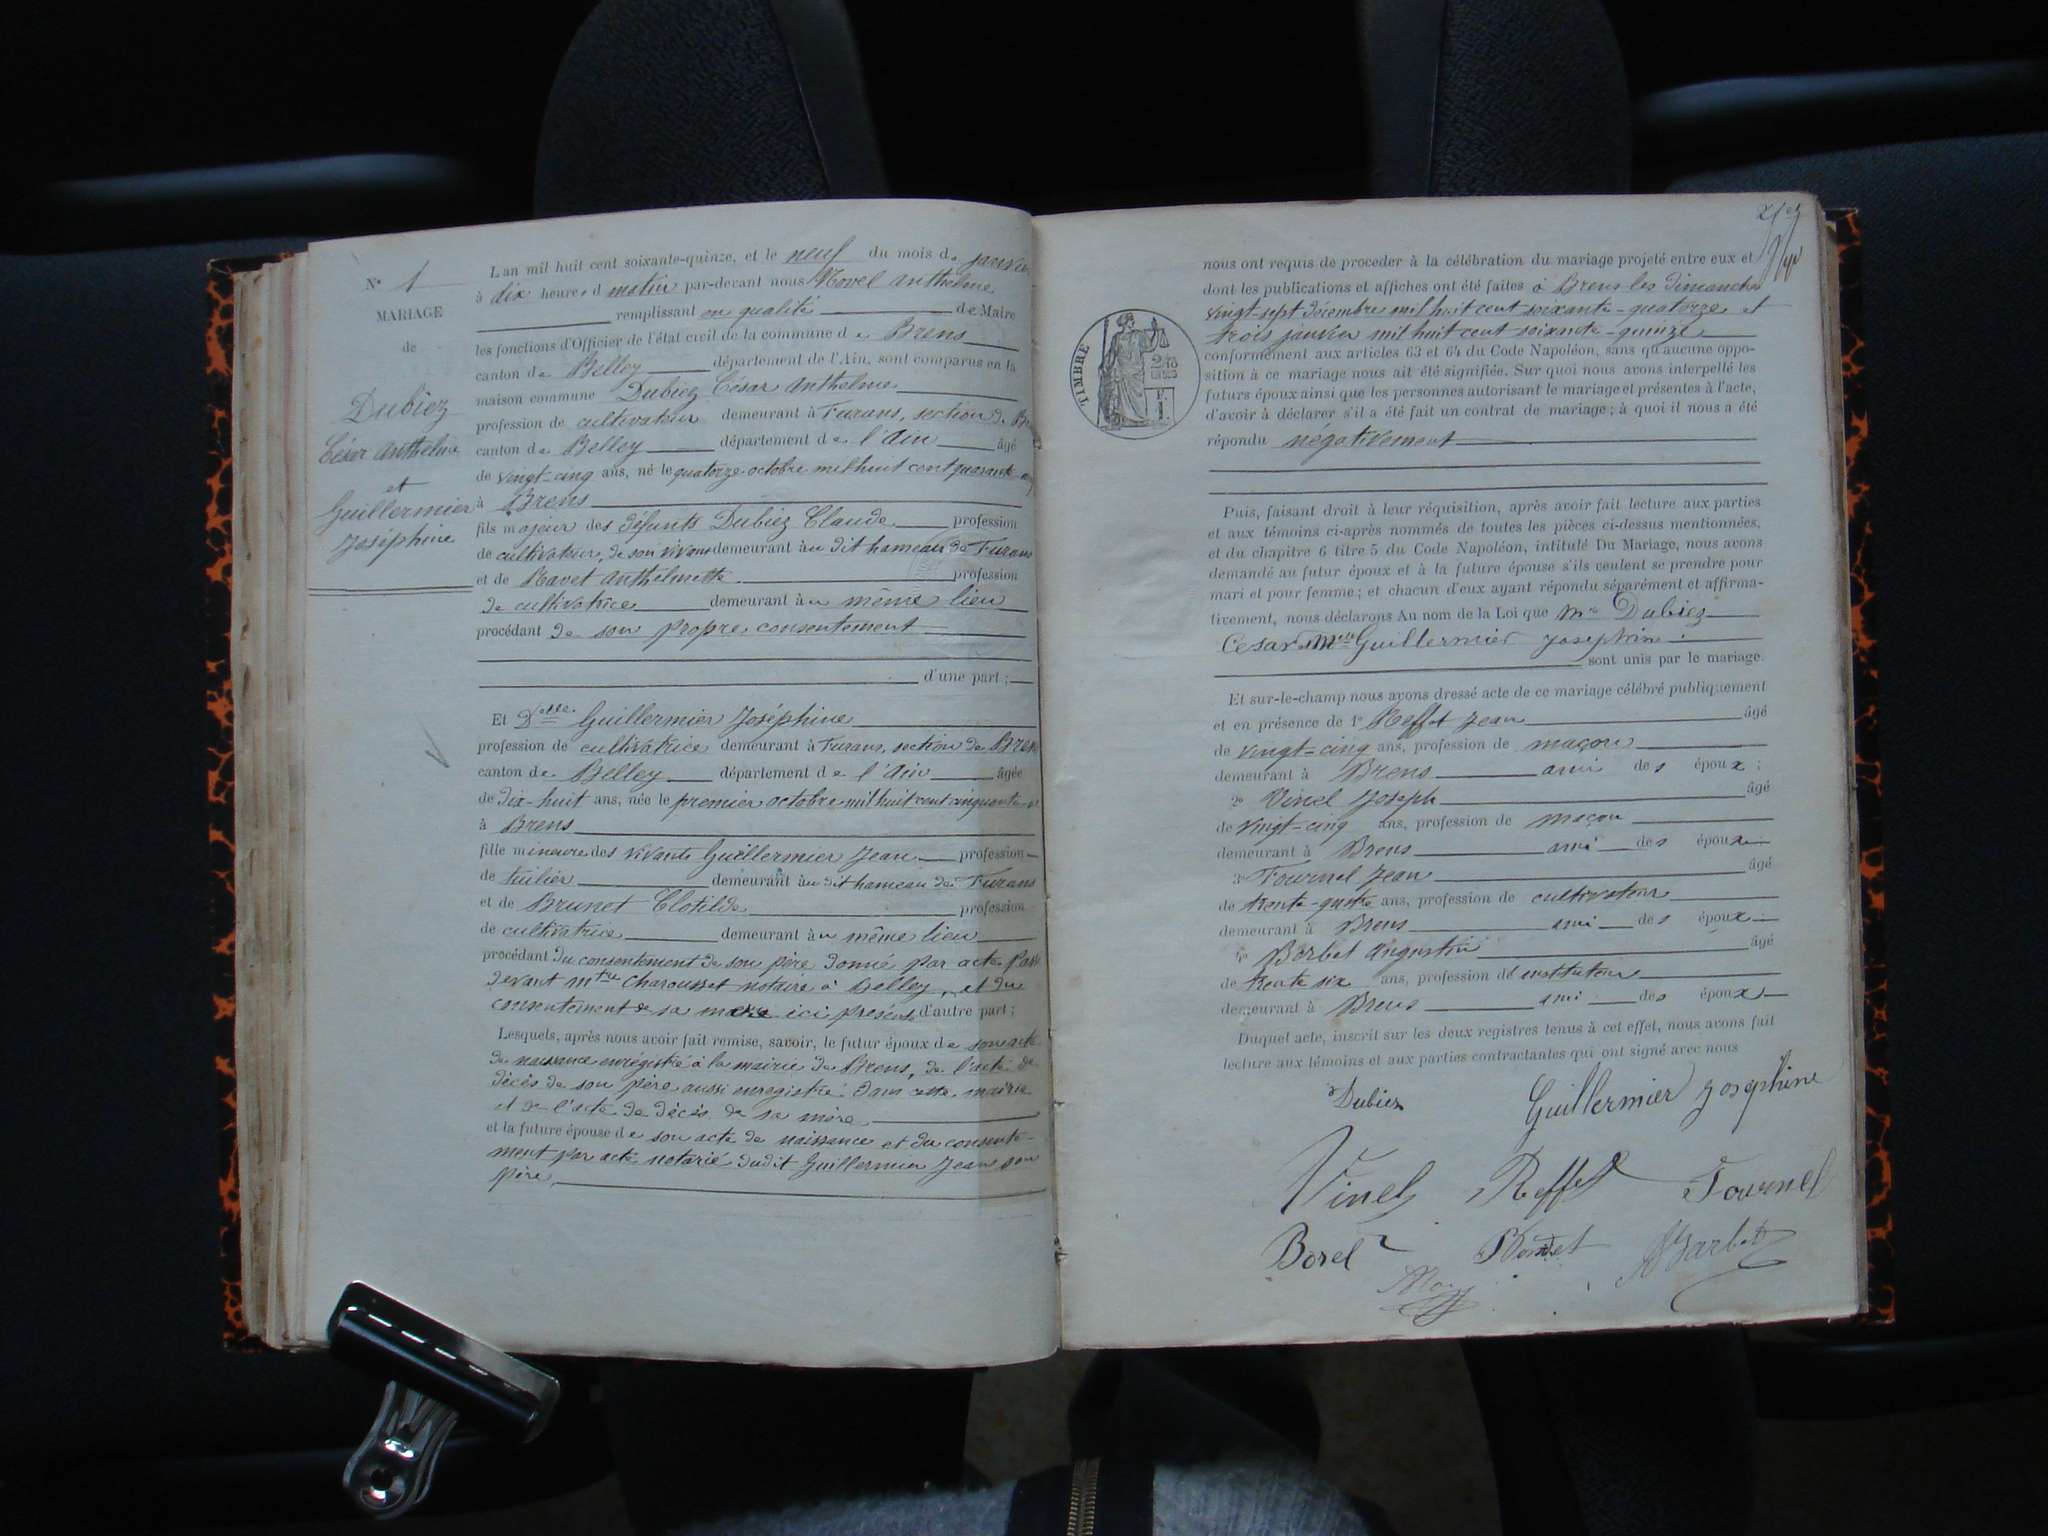 N° 1
MARIAGE
de
Dubiez
César Anthelme
et
Guillermier
Joséphine
L an mil huit cent soixante-quinze, et le neuf du mois de janvier
à dix heures d matin par-devant nous Novel Anthelme
remplissant en qualité de Maire
les fonctions d'Officier de l'état civil de la commune de Brens
canton de Belley département de l'Ain, sont comparus en la
maison commune Dubiez César Anthelme
profession de cultivateur demeurant à Furans, section de
canton de Belley département de l'Ain âgé
de vingt-cinq ans, né le quatorze octobre mil huit cent quarante
à Brens
fils majeur des défunts Dubiez Claude profession
de cultivateur, de son vivant demeurant au dit hameau de Furans
et de Ravet Anthelmette profession
de cultivatrice demeurant au même lieu
procédant de son propre consentement
d'une part ;
Et Delle Guillermier Joséphine
profession de cultivatrice demeurant à Furans, section de Brens
canton de Belley département de l'Ain âgée
de dix-huit ans, née le premier octobre mil huit cent cinquante
à Brens
fille mineure des vivants Guillermier Jean profession
de tuilier demeurant au dit hameau de Furans
et de Brunet Clotilde profession
de cultivatrice demeurant au même lieu
procédant du consentement de son père donné par acte passé
devant mtre Charousset notaire à Belley, et du
consentement de sa mère ici présente d'autre part ;
Lesquels, après nous avoir fait remise, savoir, le futur époux de son acte
de naissance enrégistré à la mairie de Brens, de l'acte de
décès de son père aussi enregistré dans cette mairie
et de l'acte de décès de sa mère
et la future épouse de son acte de naissance et du consente-
ment par acte notarié dudit Guillermier Jean son
père,
nous ont requis de proceder à la célébration du mariage projeté entre eux et
dont les publications et affiches ont été faites à Brens les Dimanches
vingt-sept décembre mil huit cent soixante-quatorze et
trois janvier mil huit cent soixante-quinze
conformément aux articles 63 et 64 du Code Napoléon, sans qu'aucune oppo-
sition à ce mariage nous ait été signifiée. Sur quoi nous avons interpellé les
futurs époux ainsi que les personnes autorisant le mariage et présentes à l'acte,
d'avoir à déclarer s'il a été fait un contrat de mariage ; à quoi il nous a été
répondu négativement
TIMBRE
Puis, faisant droit à leur réquisition, après avoir fait lecture aux parties
et aux témoins ci-après nommés de toutes les pièces ci-dessus mentionnées,
et du chapitre 6 titre 5 du Code Napoléon, intitulé Du Mariage, nous avons
demandé au futur époux et à la future épouse s'ils veulent se prendre pour
mari et pour femme ; et chacun d'eux ayant répondu séparément et affirma-
tivement, nous déclarons Au nom de la Loi que Mr Dubiez
César et Melle Guillermier Joséphine
sont unis par le mariage.
Et sur-le-champ nous avons dressé acte de ce mariage célébré publiquement
et en présence de 1° Reffet Jean âgé
de vingt-cinq ans, profession de maçon
demeurant à Brens ami des époux ;
2° Vinel Joseph âgé
de vingt-cinq ans, profession de maçon
demeurant à Brens ami des époux
3° Fournel Jean âgé
de trente-quatre ans, profession de cultivateur
demeurant à Brens ami des époux
4° Barbet Augustin âgé
de trente six ans, profession de instituteur
demeurant à Brens ami des époux
Duquel acte, inscrit sur les deux registres tenus à cet effet, nous avons fait
lecture aux témoins et aux parties contractantes qui ont signé avec nous
Dubiez Guillermier Joséphine
Vinel Reffet Fournel
Borel Barbet